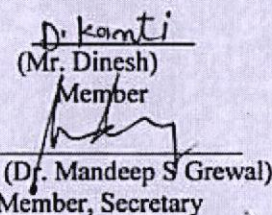 D. Kamti
(Mr. Dinesh)
Member
(Dr. Mandeep S Grewal)
Member, Secretary